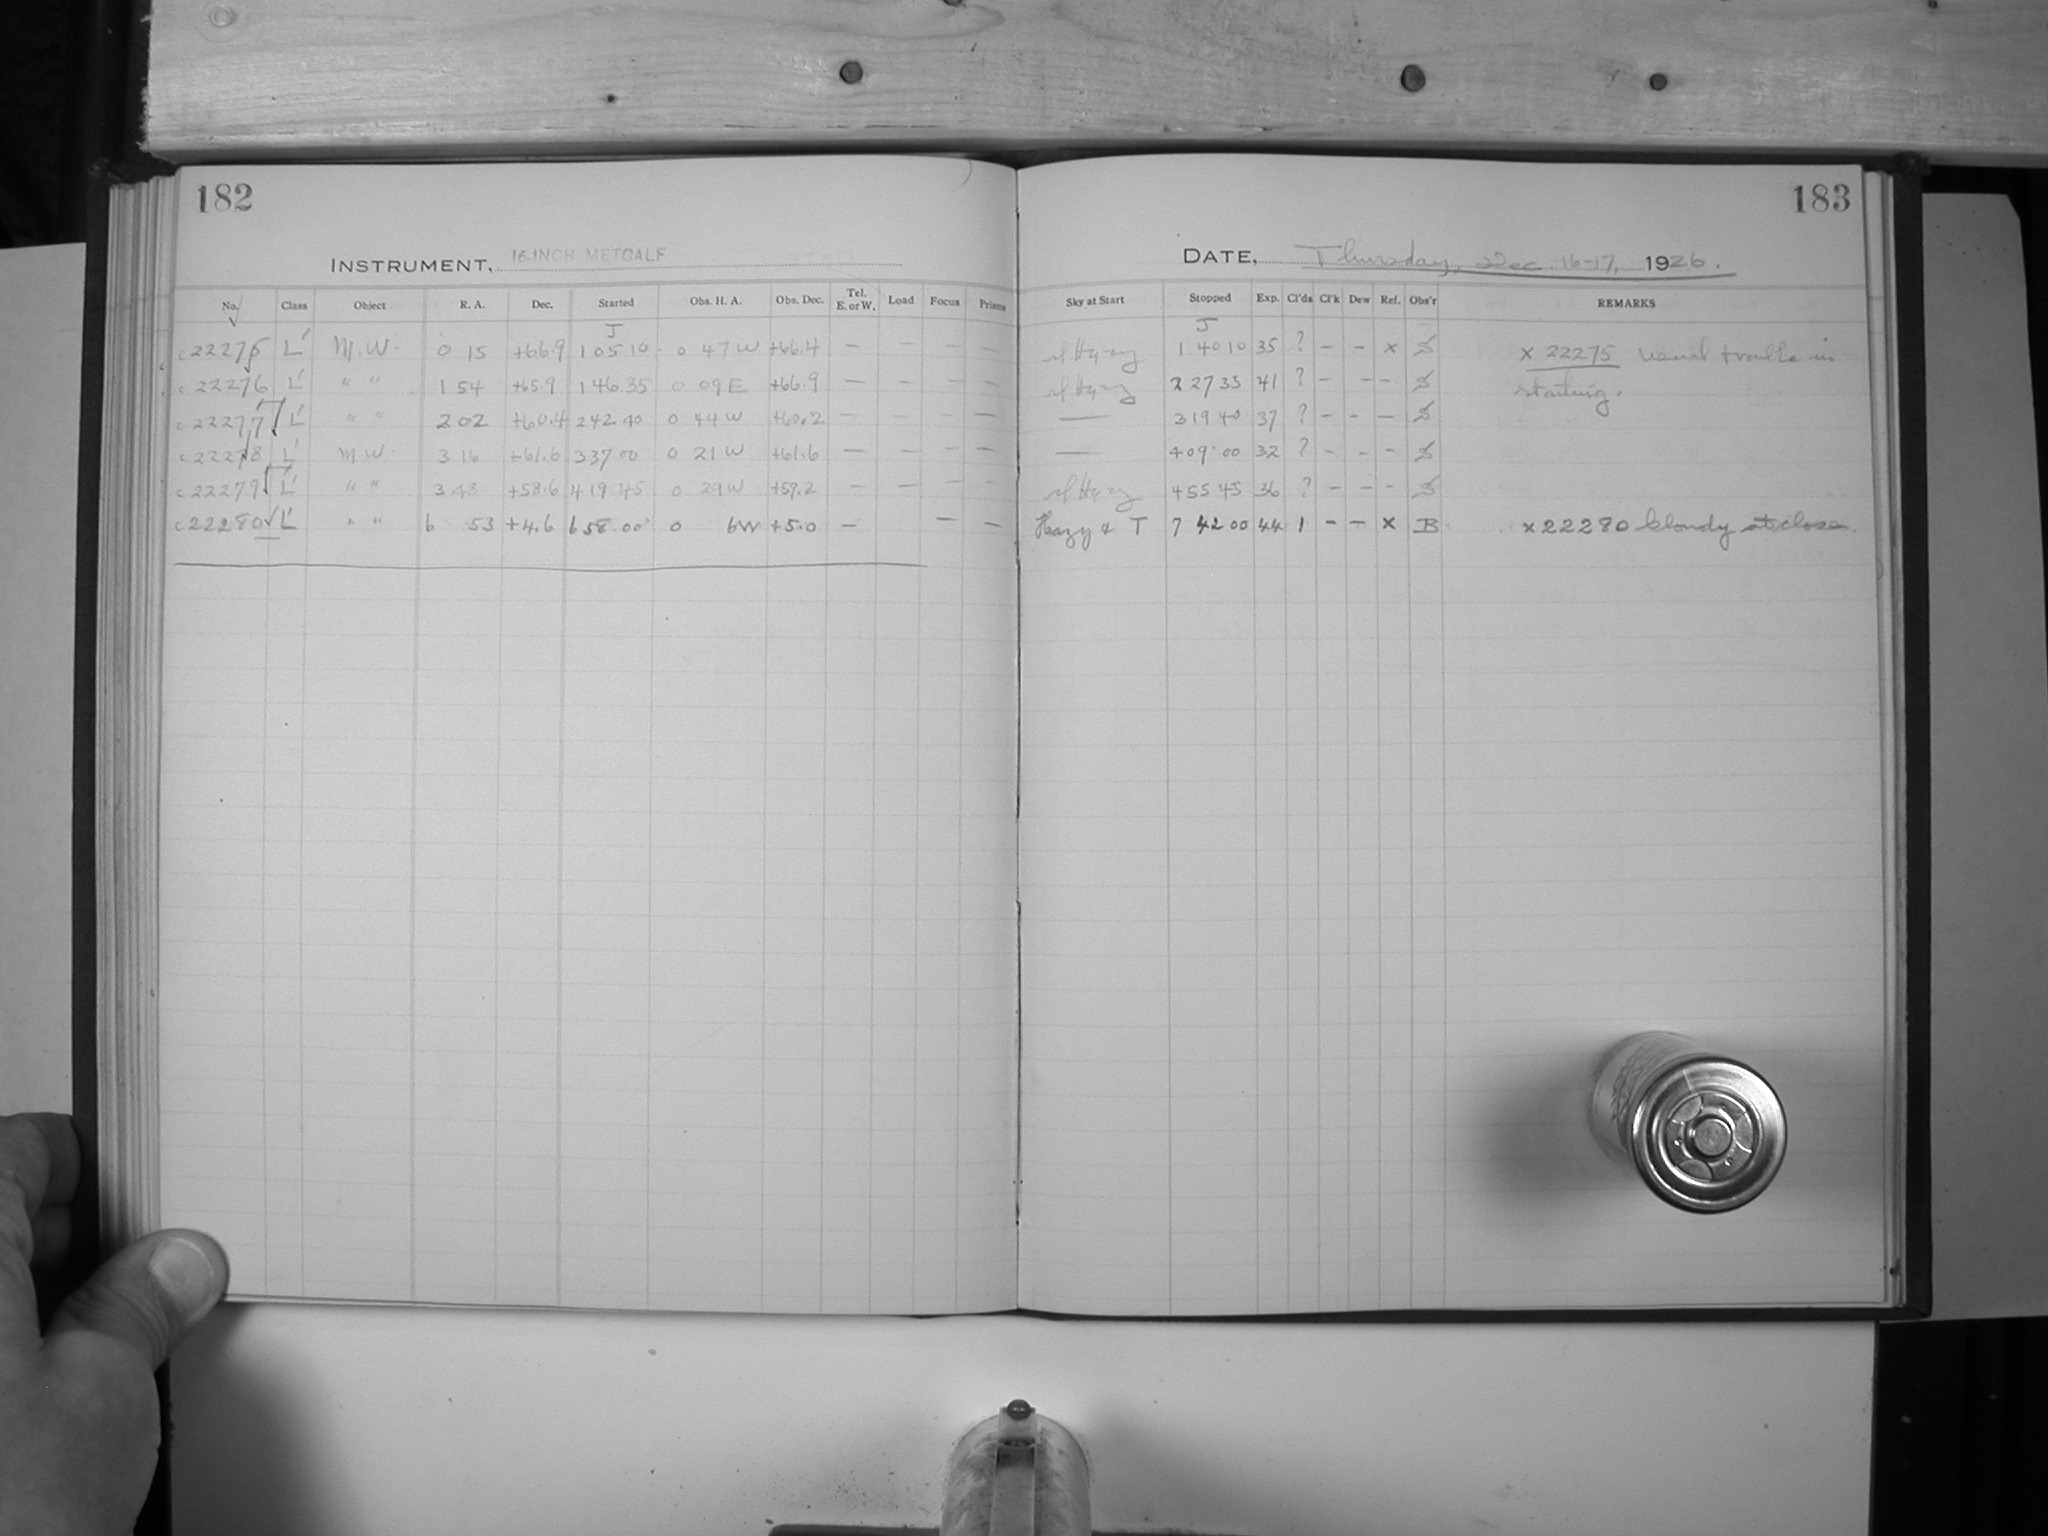 182
183
INSTRUMENT, 16-INCH METCALF
DATE, Thursday, Dec. 16-17, 1926.
No. Class Object R. A. Dec. Started Obs. H. A. Obs. Dec. Tel. E. or W. Load Focus Prisms Sky at Start Stopped Exp. Cl'ds Cl'k Dew Ref. Obs'r REMARKS
J J
c 22275 L' M.W. 0 15 +66.9 1 05 10 0 47 W +66.4 — — — — 1 40 10 35 ? – – x S x 22275 usual trouble in
c 22276 L' " " 1 54 +65.9 1 46 35 0 09 E +66.9 — — — — 2 27 33 41 ? – – – S starting.
c 22277 L' " " 2 02 +60.4 2 42 40 0 44 W +60.2 — — — — — 3 19 40 37 ? – – – S
c 22278 L' M W. 3 16 +61.6 3 37 00 0 21 W +61.6 — — — — — 4 09 00 32 ? – – – S
c 22279 L' " " 3 48 +58.6 4 19 45 0 29 W +59.2 — — — — 4 55 45 36 ? – – – S
c 22280 L' " " 6 53 +4.6 6 58 00 0 6W +5.0 — — — Hazy & T 7 42 00 44 1 – – x B x 22280 cloudy at close.